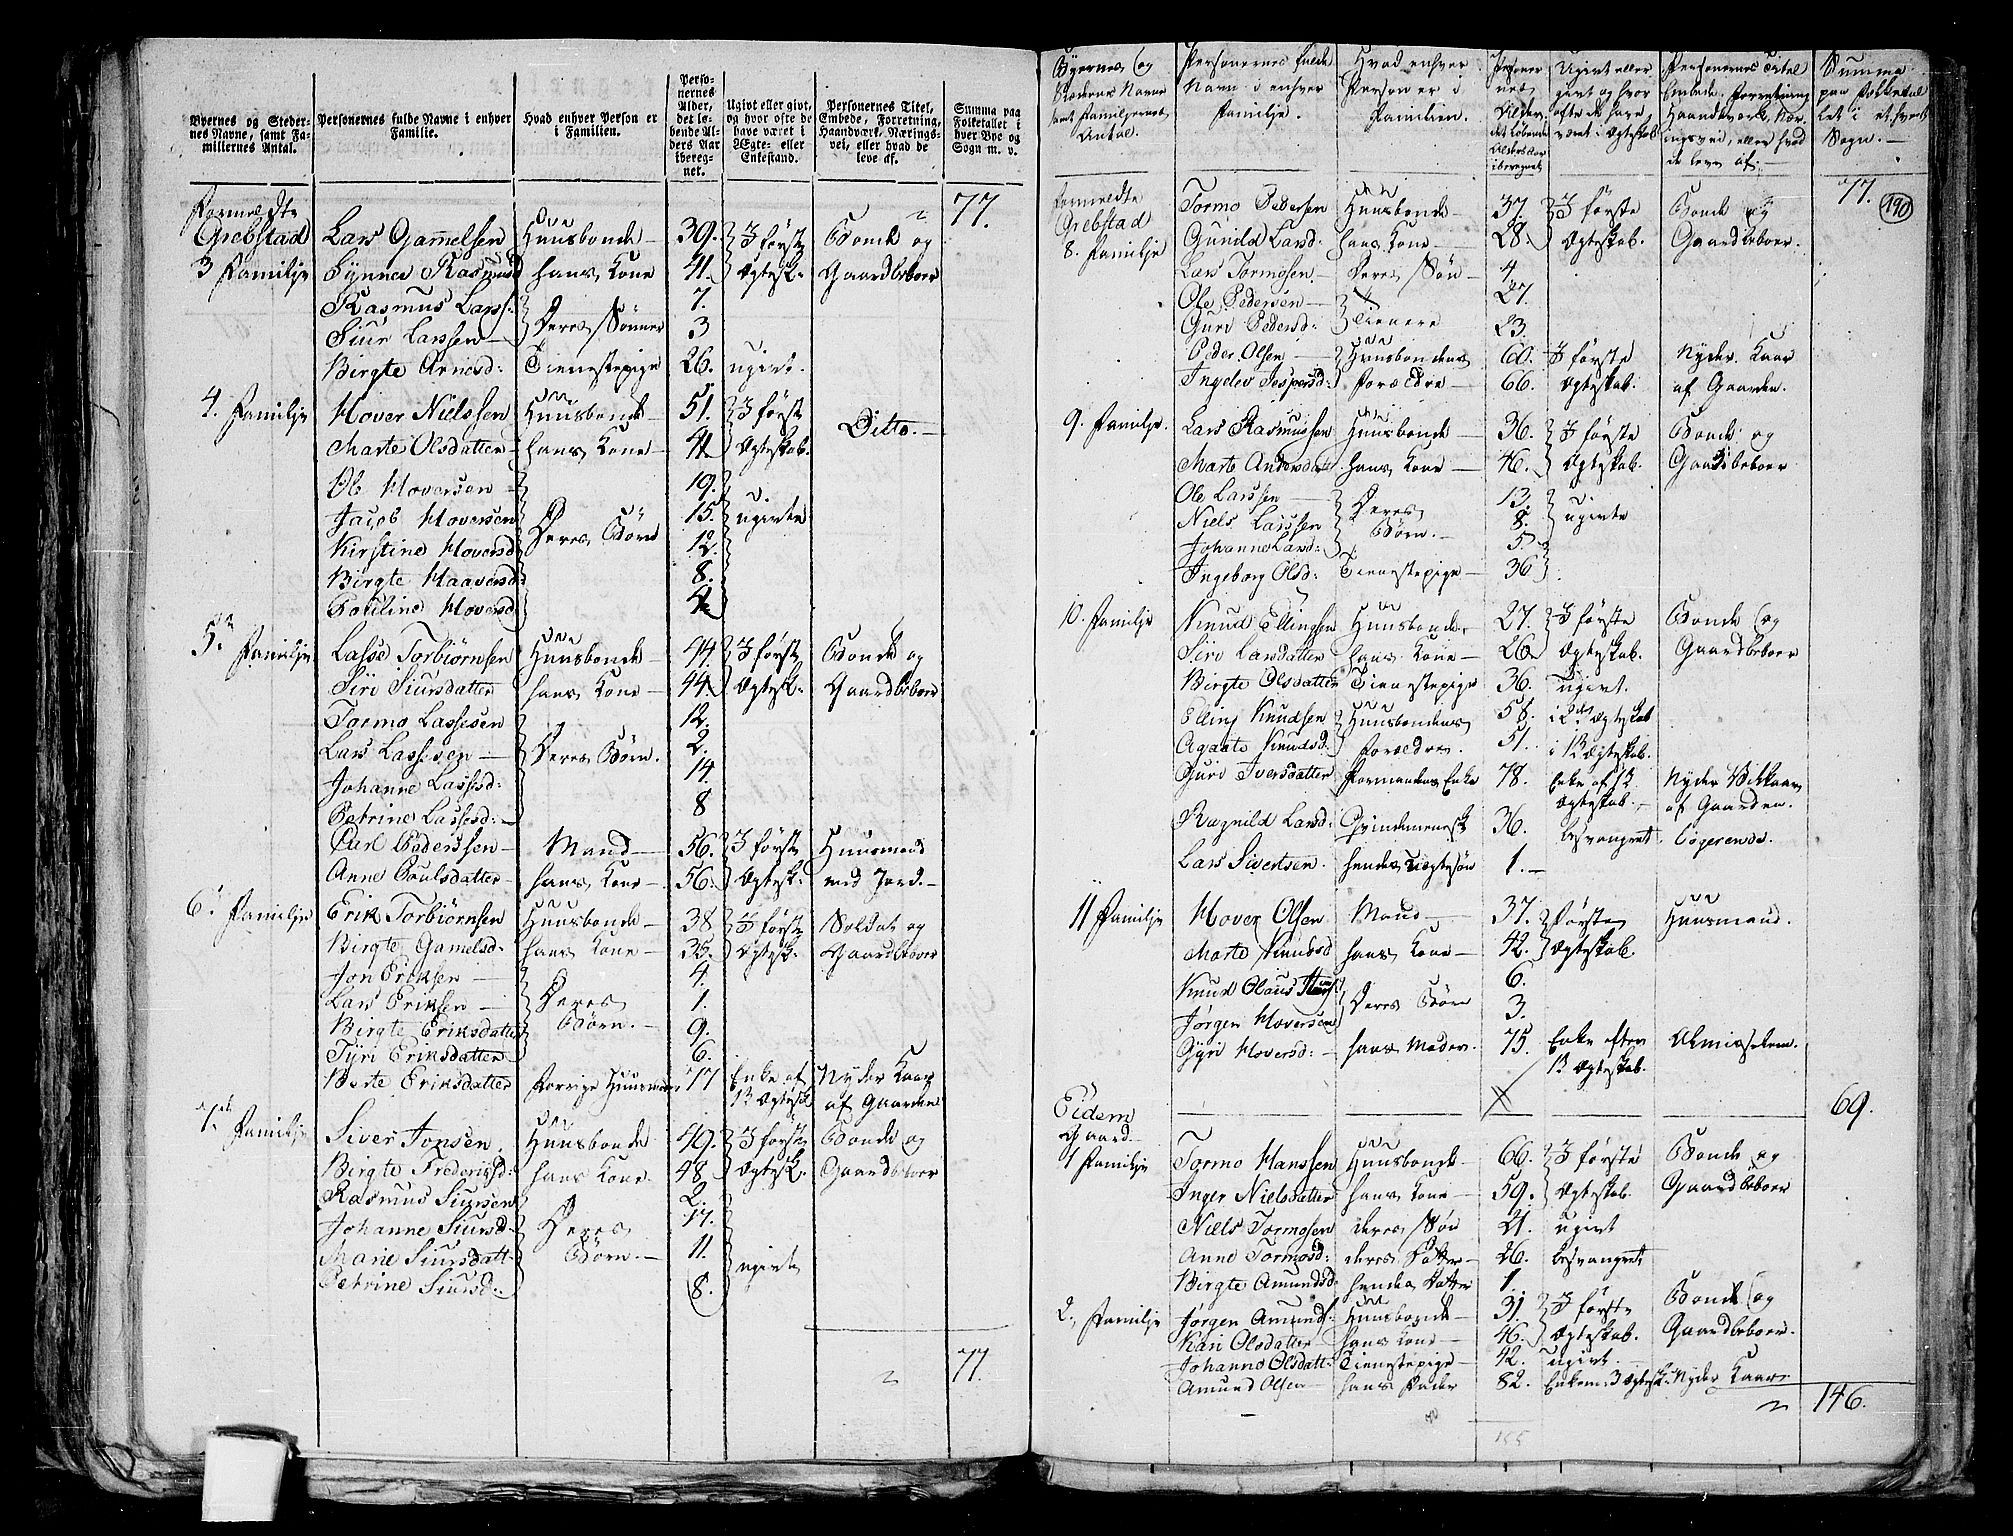 Byernes og Stedernes Navne, samt Familiernes Antal. | Personernes fulde Navne i enhver Familie. | Hvad enhver Person er i Familien. | Personernes Alder, det løbende Alders Aar iberegnet. | Ugivt eller givt, og hvor ofte de have været i Ægte- eller Enkestand. | Personernes Titel, Embede, Forretning, Haandværk, Næringsvei, eller hvad de leve af. | Summa paa Folketallet i hver Bye og Sogn m. v.
Formeldte 77.
Grebstad Lars Gammelsen Huusbonde 39. I første Bonde og
3 Familje Synneve Rasmusd hans Kone 41. Ægtesk: Gaardbeboer
Rasmus Larss: 7.
Siur Larssen Deres Sønner 3
Birgte Arnesd: Tienestepige 26. ugivt.
4. Familje Hover Nielssen Huusbonde 51. I første
Marte Olsdatter hans Kone 41 Ægteskab. Ditto.
Ole Hoversen 19.
Jacob Hoversen 15. ugivte
Kirstine Hoversd Deres Børn 12.
Birgte Haaversd: 8.
Pauline Hoversd 4
5. Familje Lasse Torbiørnsen Huusbonde 44. I første Bonde og
Siri Siursdatter hans Kone 44 Ægtesk: Gaardbeboer
Tormo Lassesen 12.
Lars Lassesen Deres Børn. 2.
Johanne Lassesd: 14.
Petrine Lassesd: 8
Carl Pederssen Mand 56. I første Huusmand
Anne Poulsdatter hans Kone 56. Ægtesk: med Jord.
6. Familje Erik Torbiørnsen Huusbonde 38 I første Soldat og
Birgte Gamelsd: hans Kone 35. Ægtesk: Gaardbeboer
Jon Eriksen 4.
Lars Eriksen Deres 1.
Birgte Eriksdatter Børn. 9.
Tyri Eriksdatter 6.
Berte Eriksdatter Forrige Huusmoer 77 Enke af Nyder Kaar
1ste Ægtesk af Gaarden
7. Familje Siver Jonsen Huusbonde 49. I første Bonde og
Birgte Frederiksd: hans Kone 48. Ægtesk: Gaardbeboer
Rasmus Siursen 2.
Johanne Siursd: Deres 17.
Marie Siursdatt: Børn. 11. ugivt
Petrine Siursd: 8.
77.
Byernes og Stedernes Navne samt Familjernes Antal. | Personernes fulde Navn i enhver Familje. | Hvad enhver Person er i Familien. | Personernes Alder, det løbende Alders Aar iberegnet | Ugivt eller givt og hvor ofte de have været i Ægteskab | Personernes Titel Embede, Forretning, Haandværk, Næringsvei, eller hvad de leve af: | Summa paa Folketallet i et hvert Sogn.
Formeldte Tormo Pedersen Huusbonde 37. I første Bonde og 77. 190
Grebstad Gunild Larsd: hans Kone 28. Ægteskab. Gaardbeboer.
8. Familje Lars Tormosen Deres Søn 4.
Ole Pedersen 27.
Guri Pedersd: Tienere 23.
Peder Olsen Huusbondens 60. I første Nyder Kaar
Ingelev Jespersd: Forældre 66. Ægteskab. af Gaarden.
9. Familje. Lars Rasmussen Huusbonde 36. I første Bonde og
Marte Andersdatt: hans Kone 46. Ægteskab. Gaardbeboer
Ole Larssen Deres 13.
Niels Larssen Børn. 8. ugivte
Johanne Larsd: 5.
Ingeborg Olsd: Tienestepige 36
10. Familje Knud Ellingsen Huusbonde 27. I første Bonde og
Siri Larsdatter hans Kone 26. Ægteskab. Gaardbeboer
Birgte Olsdatter Tienestepige 36. Ugivt.
Elling Knudsen Huusbondens 58. i 2det Ægteskab
Agaate Knudsd Forældre. 51. i 1ste Ægteskab.
Guri Iversdatter Formandens Enke 78. Enke af 1ste Nyder Vilkaar
Ægteskab. af Gaarden.
Ragnild Larsd: Qvindemenesk 36. besvangret. Logerende.
Lars Sivertsen. hendes Uægtesøn 1.
11 Familje Hover Olsen Mand 37. Første Huusmand.
Marte Knudsd hans Kone 42. Ægteskab.
Knud Olaus 6.
Jørgen Hoversen Deres Børn 3.
Gyri Hoversd: hans Moder. 75. Enke efter Almisselem.
1ste Ægteskab.
Eidem 69.
Gaard
1 Familje Tormo Hanssen Huusbonde 66. I første Bonde og
Inger Nielsdatter hans Kone 59. Ægteskab. Gaardbeboer
Niels Tormosen deres Søn 21. ugivt
Anne Tormosd: deres Datter 26. besvangret
Birgte Amundsd: hendes Datter 1.
2. Familje Jørgen Amunds Huusbonde 31. I første Bonde og
Kari Olsdatter hans Kone 46. Ægteskab. Gaardbeboer.
Johanne Olsdatt: Tienestepige 42. ugivt.
Amund Olsen hans Fader 82. Enkem: 3 Ægtesk: Nyder Kaar.
146.